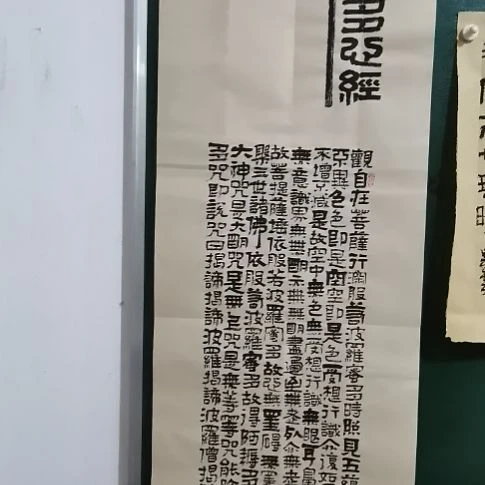 多心經
觀自在菩薩行深般若波羅蜜多時照見五蘊
不異色色即是空空即是色受想行識亦復如
不增不減是故空中無色無受想行識無眼耳鼻
無意識界無無明亦無無明盡乃至無老死亦無老
故菩提薩埵依般若波羅蜜多故心無罣礙無罣
槃三世諸佛依般若波羅蜜多故得阿耨多
大神咒是大明咒是無上咒是無等等咒能除
多咒即說咒曰揭諦揭諦波羅揭諦波羅僧揭諦